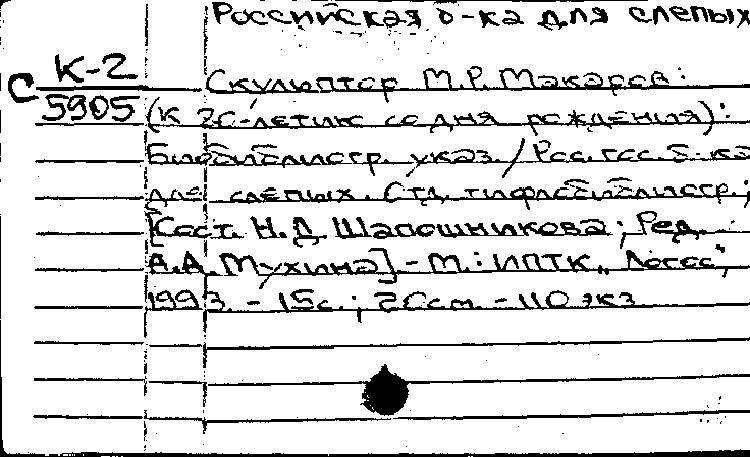 Российская б-ка для слепых
С К-2
5905
Скульптор М.Р. Макаров:
(К 20-летию со дня рождения):
Биобиблиогр. указ. / Рос. гос. б-ка
для слепых. Отд. тифлобиблиогр.;
[Сост. Н.Д. Шапошникова; Ред.
А.А. Мухина] - М.: ИПТК „Логос",
1993. - 15с.; 20см. - 110 экз